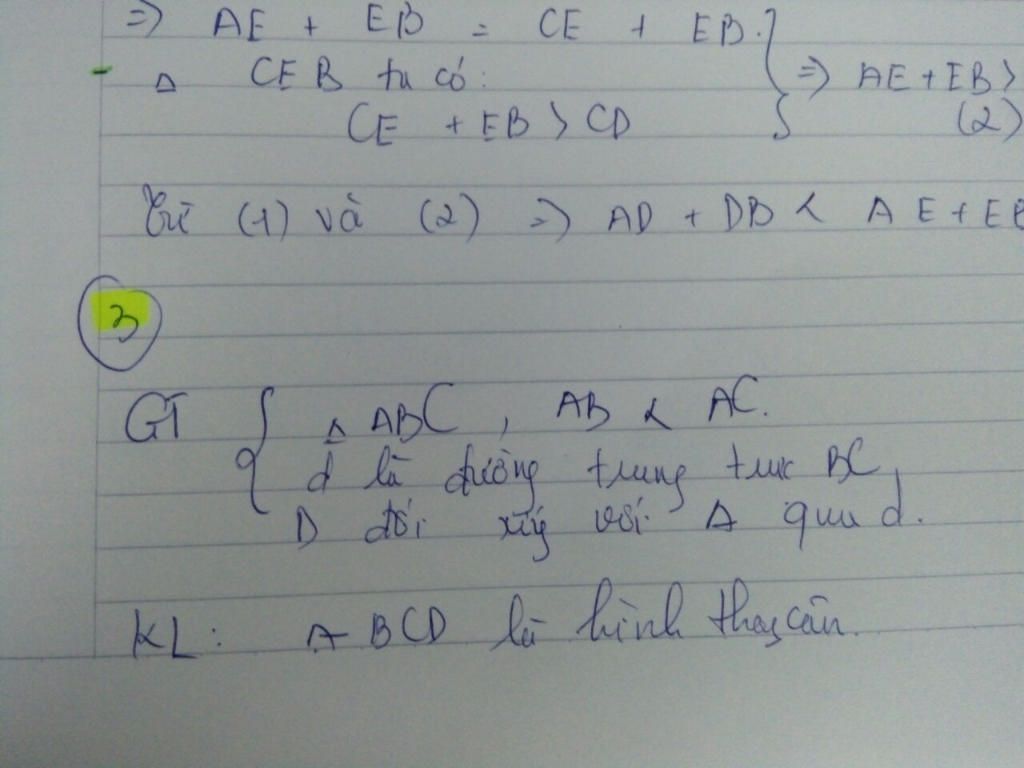 => AE + EB = CE + EB.
- △ CEB ta có: => AE + EB >
CE + EB > CD (2)
Từ (1) và (2) => AD + DB < AE + EB
3
GT { △ ABC, AB < AC.
d là đường trung trực BC,
D đối xứng với A qua d.
KL: ABCD là hình thang cân.